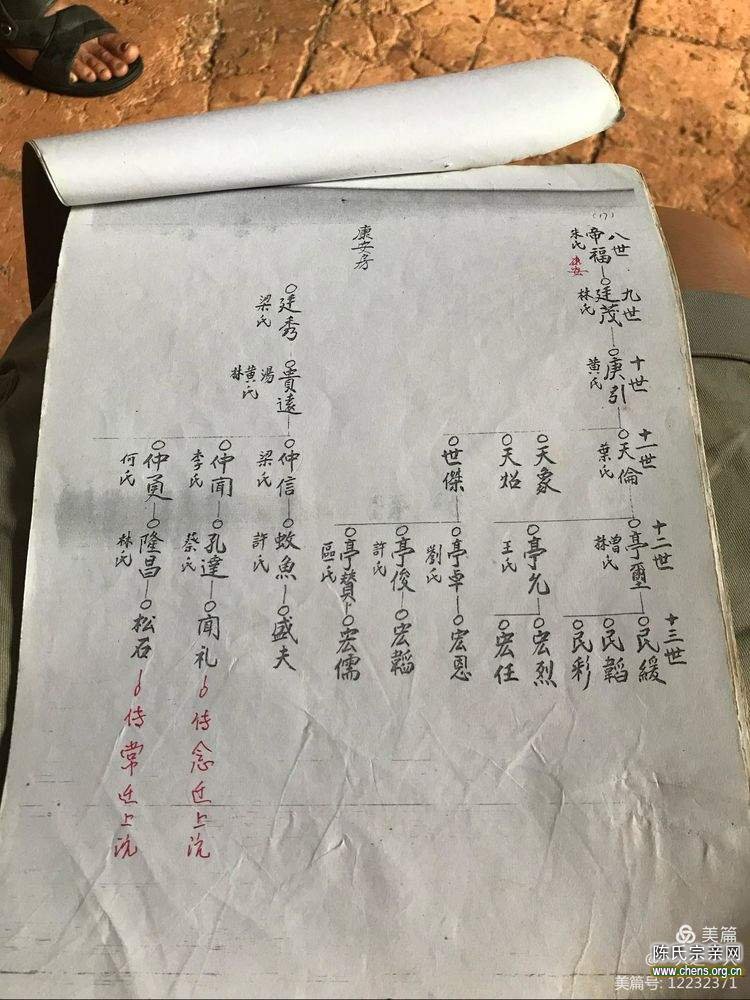 (17)
康安房
八世
帝福
朱氏
康安
九世
廷茂
林氏
廷秀
梁氏
十世
庚引
黄氏
貴遠
湯
黄氏
林
十一世
天倫
葉氏
天象
天炤
世傑
仲信
梁氏
仲聞
李氏
仲勇
何氏
十二世
亭璽
曽氏
林
亭允
王氏
亭卓
劉氏
亭俊
許氏
亭贊
區氏
蚊魚
許氏
孔達
蔡氏
隆昌
林氏
十三世
民緩
民韜
民彩
宏烈
宏任
宏恩
宏韜
宏儒
盛夫
聞礼
松石
傳念迁上沆
傳常迁上沆
美篇
陈氏宗亲网
www.chens.org.cn
美篇号: 12232371